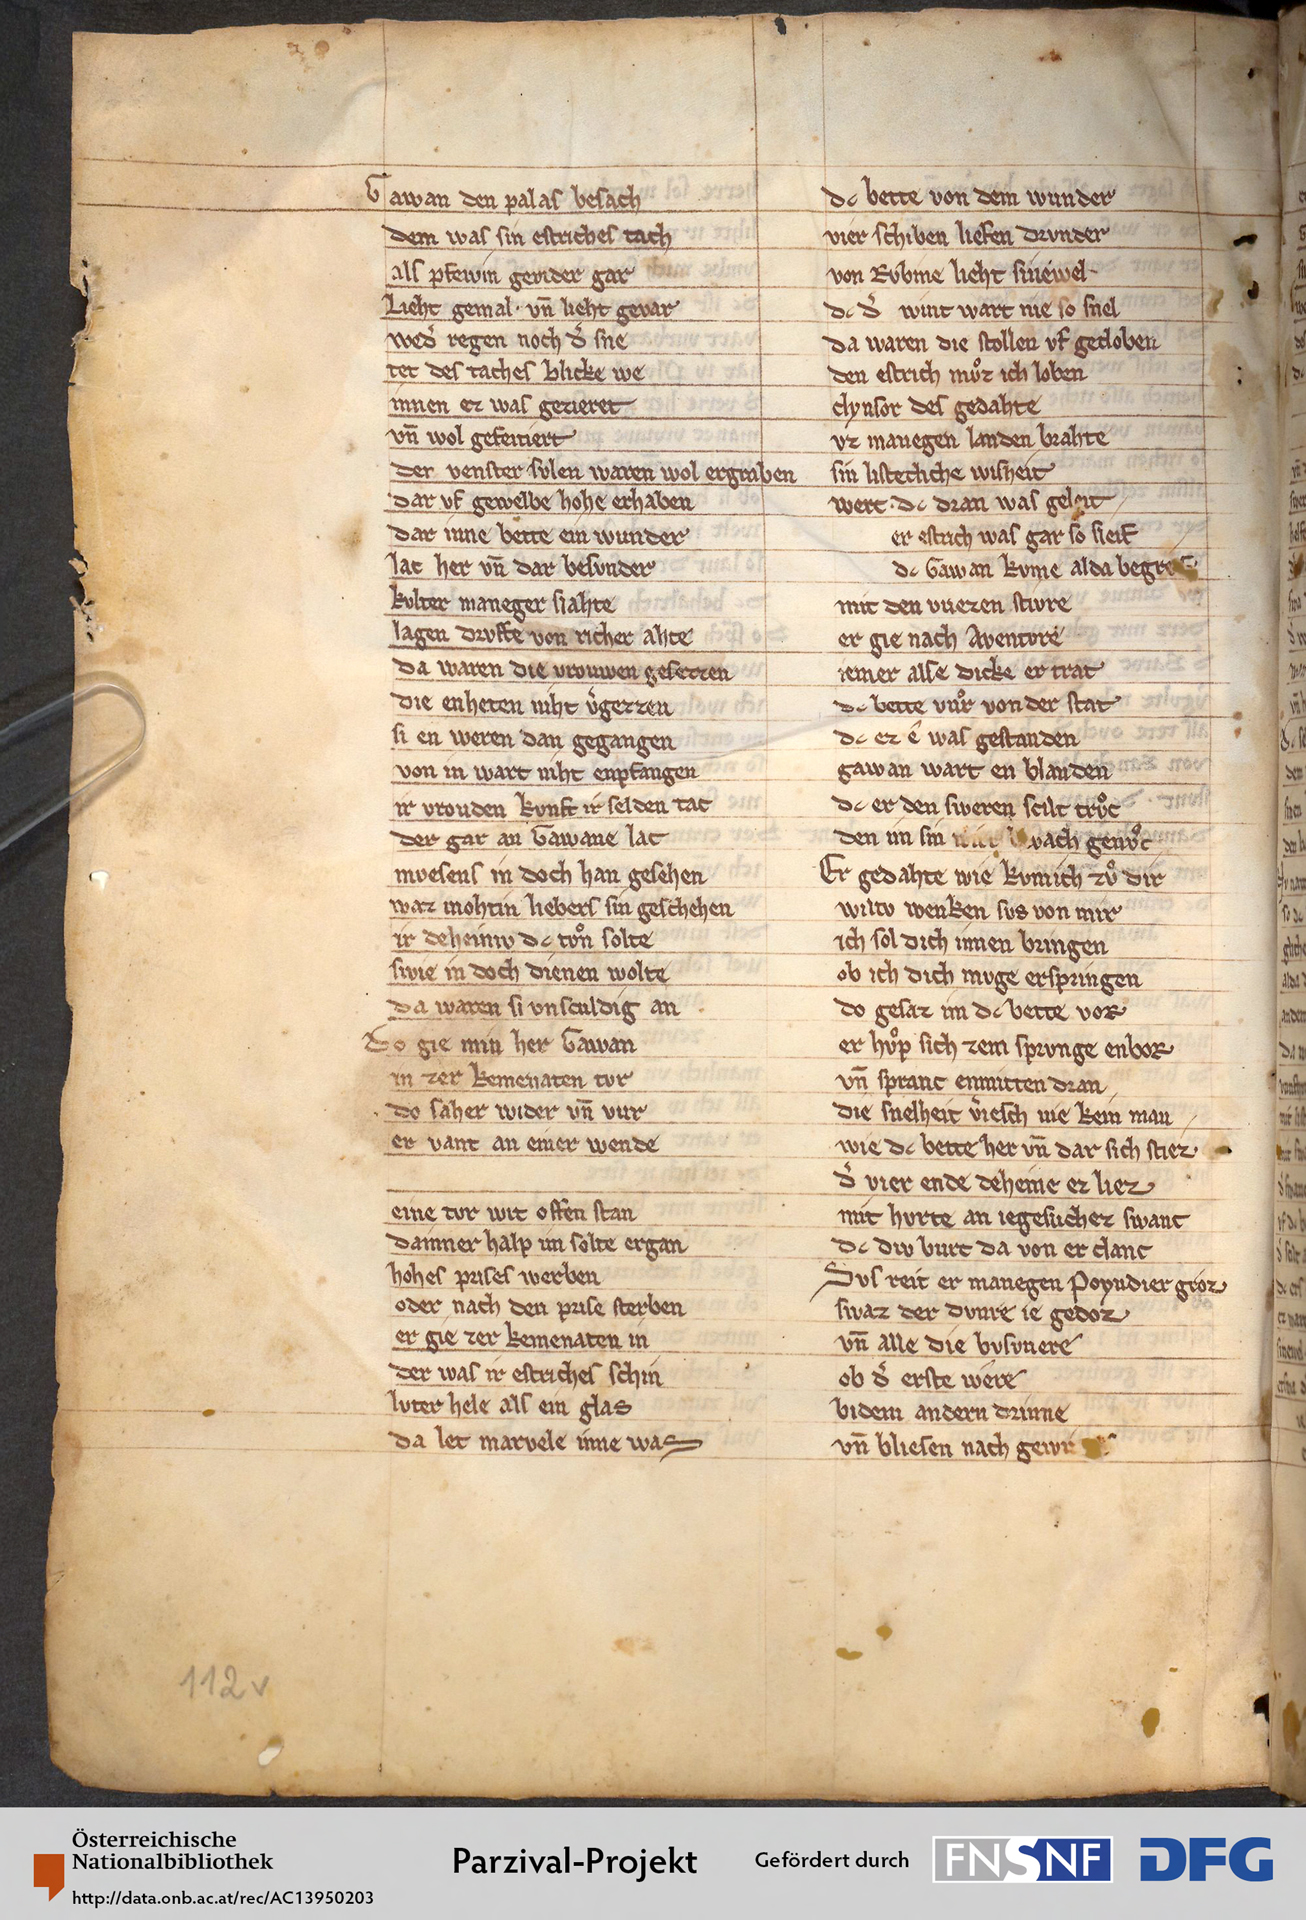 Gawan den palas besach
dem was sin estriches tach
als pfewin gevider gar
Lieht gemal · vn̄ lieht gevar
wed͛ regen noch d͛ sne
tet des taches blicke we
innen ez was gezieret
vn̄ wol gefeitiert
der venster svlen waren wol ergraben
dar vf gewelbe hohe erhaben
dar inne bette ein wunder
lac her vn̄ dar besvnder
kvlter maneger slahte
lagen drvffe von richer ahte
da waren die vrouwen gesetzen
die enheten niht v͛gezzen
si en weren dan gegangen
von in wart niht enpfangen
ir vrouden kvnft ir selden tac
der gar an Gawane lac
mvesens in doch han gesehen
waz mohtin liebers sin geschehen
ir deheiniv dc tvͦn solte
swie in doch dienen wolte
da waren si vnsculdig an
Do gie min her Gawan
in zer kemenaten tor
do saher wider vn̄ vur
er vant an einer wende
eine tvr wit offen stan
dainner halp im solte ergan
hohes prises werben
oder nach den prise sterben
er gie zer kemenaten in
der was ir estriches schin
lvter hele als ein glas
da Let marvele inne was
dc bette von dem wunder
vier schiben liefen drvnder
von Rvbine lieht sinewel·
dc d͛ wint wart nie so snel
da waren die stollen vf gecloben
den estrich mvͦz ich loben
clynsor des gedahte
vz manegen landen brahte
sin listecliche wisheit
werc · dc dran was geleit
er estrich was gar so sleif
dc Gawan kvme alda begreif
mit den vuezen stivre
er gie nach Aventvre
iemer alse dicke er trat
dc bette vuͦr von der stat
dc ez ê was gestanden
gawan wart en blanden
dc er den sweren scilt trvͦc
den im sin vach genvͦc
Er gedahte wie kvmich zvͦ dir
wiltv wenken svs von mir
ich sol dich innen bringen
ob ich dich mvge erspringen
do gesaz im dc bette vor
er hvͦp sich zem sprvnge enbor
vn̄ spranc enmitten dran
die snelheit v͛iesch nie kein man
wie dc bette her vn̄ dar sich stiez
d͛ vier ende deheine ez liez
mit hvrte an iegeslichez swanc
dc div burc da von er clanc
Svs reit er manegen Poyndier groz
swaz der dvnre ie gedoz
vn̄ alle die bvsvnere
ob d͛ erste were
bidem andern drinne
vn̄ bliesen nach
112v
Österreichische
Nationalbibliothek
http://data.onb.ac.at/rec/AC13950203
Parzival-Projekt
Gefördert durch
FNSNF
DFG